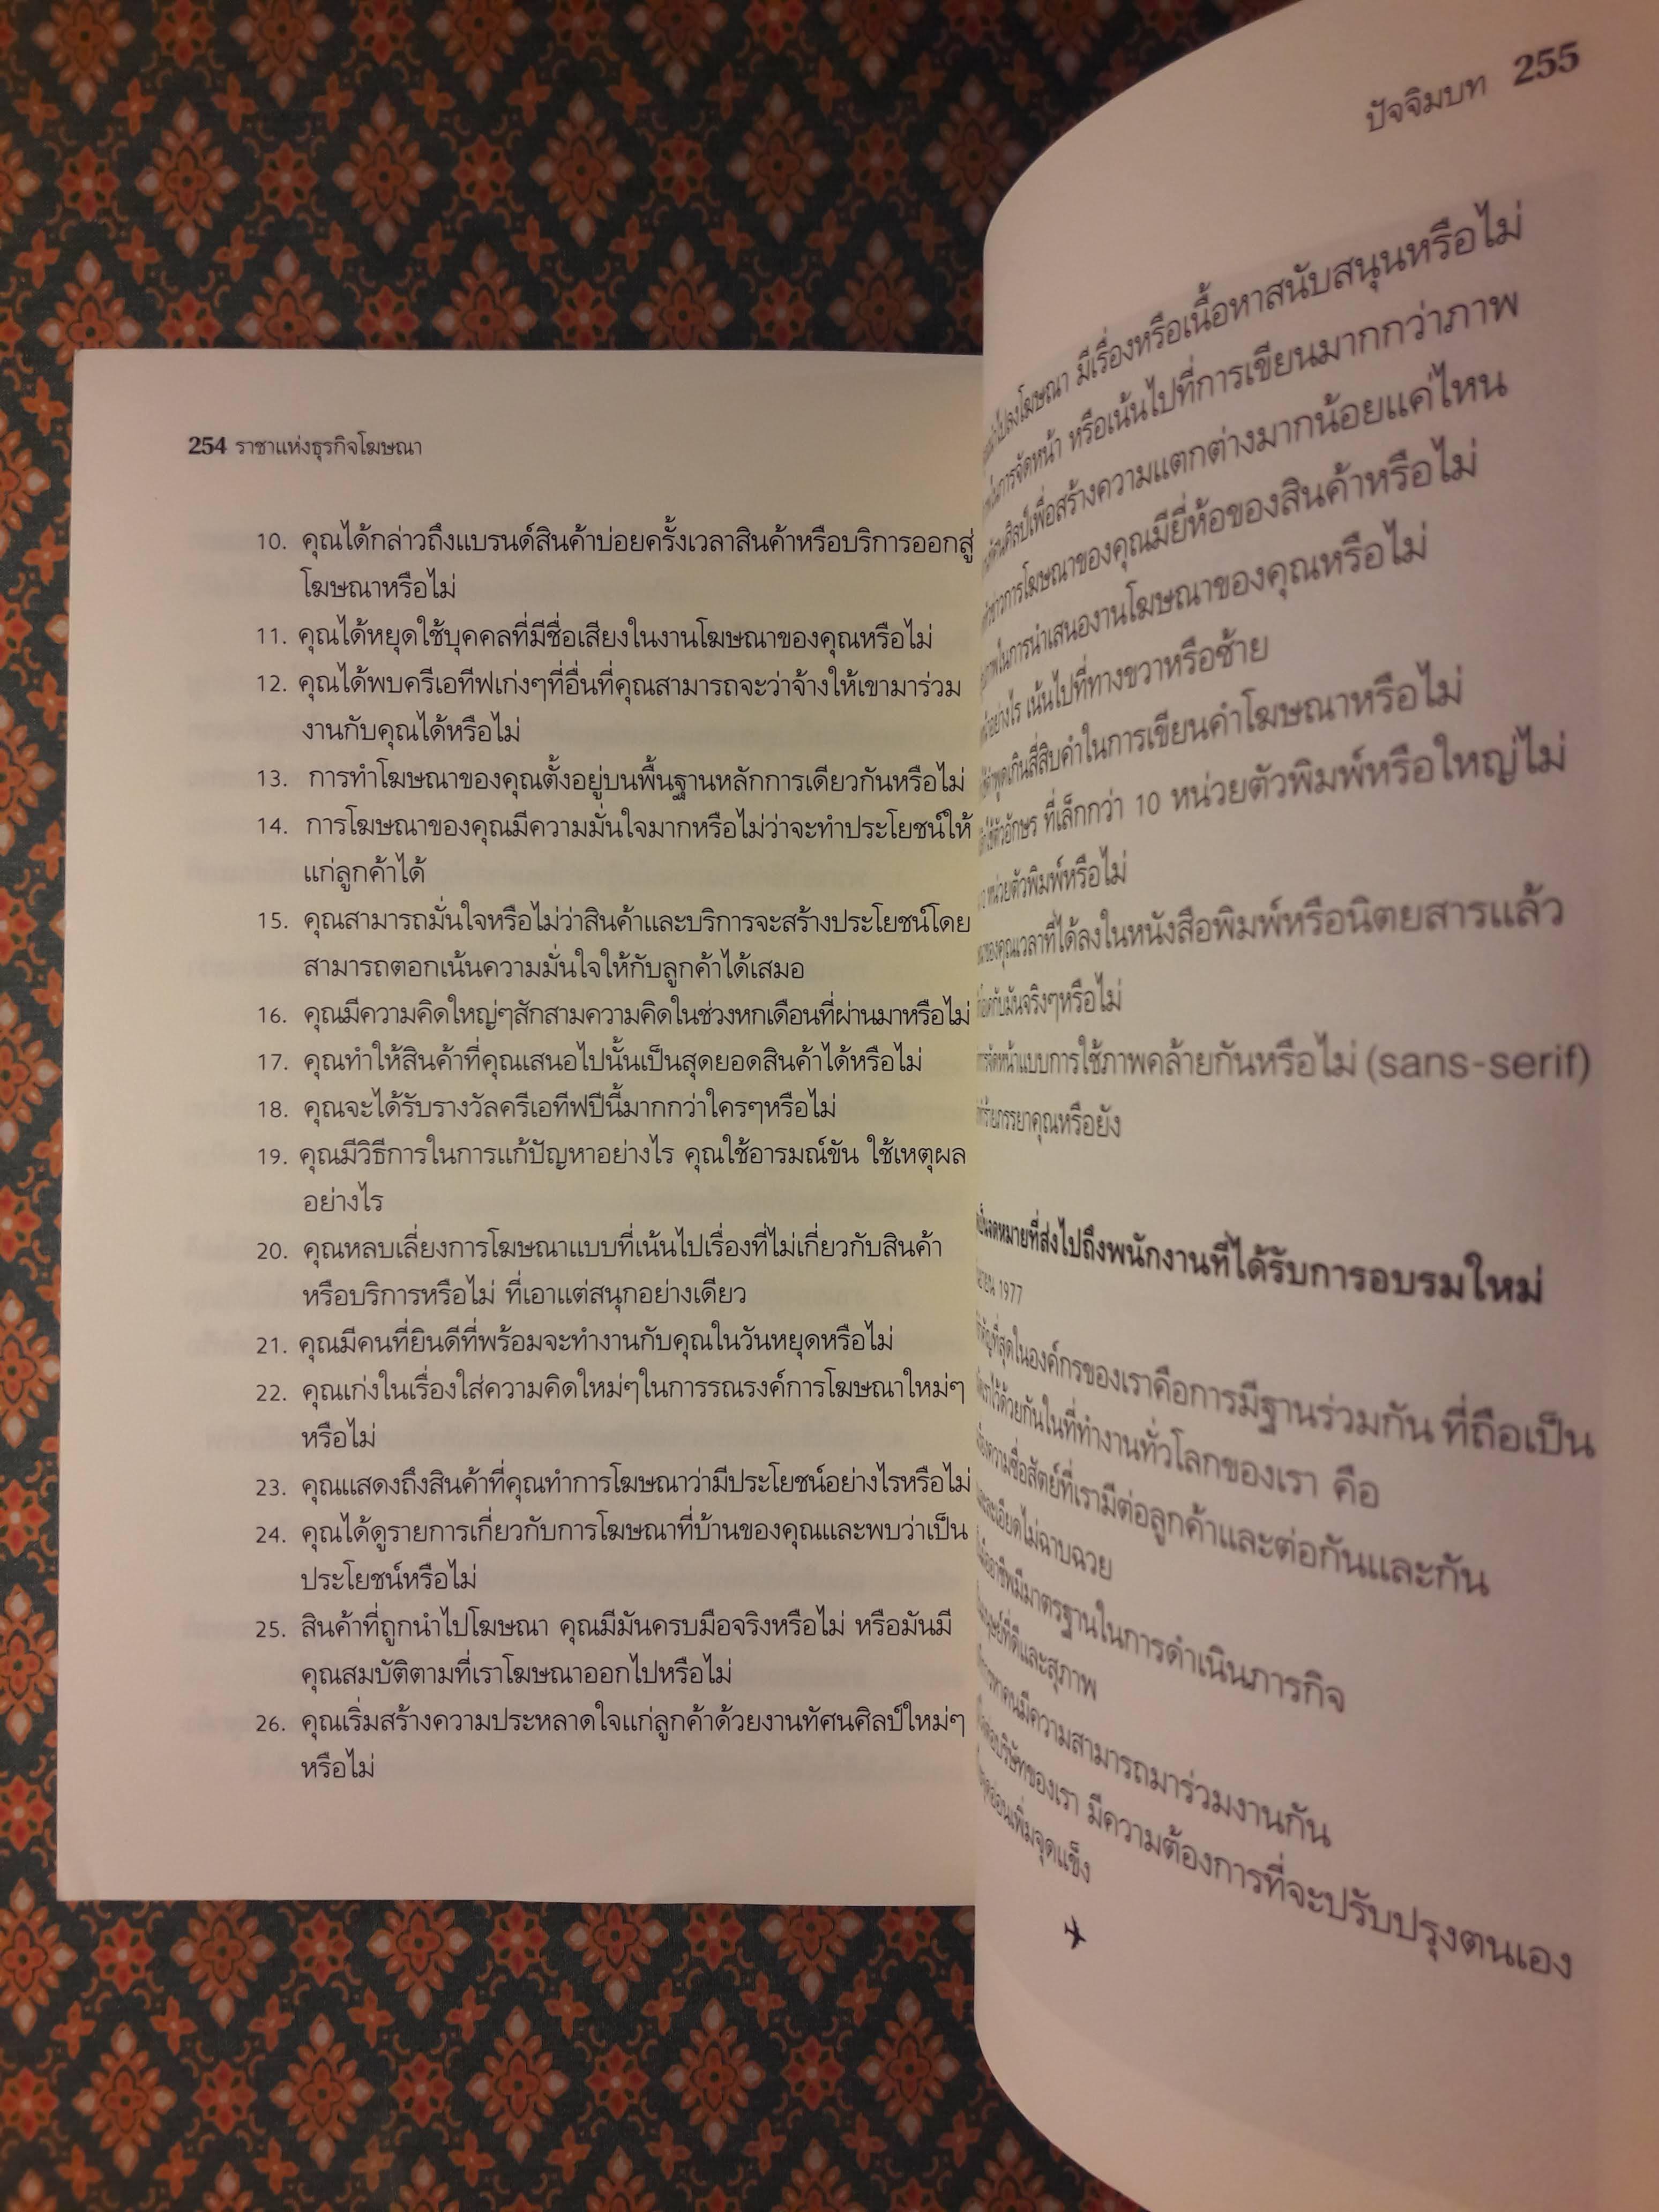 254 ราชาแห่งธุรกิจโฆษณา
10. คุณได้กล่าวถึงแบรนด์สินค้าบ่อยครั้งเวลาสินค้าหรือบริการออกสู่
โฆษณาหรือไม่
11. คุณได้หยุดใช้บุคคลที่มีชื่อเสียงในงานโฆษณาของคุณหรือไม่
12. คุณได้พบครีเอทีฟเก่งๆที่อื่นที่คุณสามารถจะว่าจ้างให้เขามาร่วม
งานกับคุณได้หรือไม่
13. การทำโฆษณาของคุณตั้งอยู่บนพื้นฐานหลักการเดียวกันหรือไม่
14. การโฆษณาของคุณมีความมั่นใจมากหรือไม่ว่าจะทำประโยชน์ให้
แก่ลูกค้าได้
15. คุณสามารถมั่นใจหรือไม่ว่าสินค้าและบริการจะสร้างประโยชน์โดย
สามารถตอกเน้นความมั่นใจให้กับลูกค้าได้เสมอ
16. คุณมีความคิดใหญ่ๆสักสามความคิดในช่วงหกเดือนที่ผ่านมาหรือไม่
17. คุณทำให้สินค้าที่คุณเสนอไปนั้นเป็นสุดยอดสินค้าได้หรือไม่
18. คุณจะได้รับรางวัลครีเอทีฟปีนี้มากกว่าใครๆหรือไม่
19. คุณมีวิธีการในการแก้ปัญหาอย่างไร คุณใช้อารมณ์ขัน ใช้เหตุผล
อย่างไร
20. คุณหลบเลี่ยงการโฆษณาแบบที่เน้นไปเรื่องที่ไม่เกี่ยวกับสินค้า
หรือบริการหรือไม่ ที่เอาแต่สนุกอย่างเดียว
21. คุณมีคนที่ยินดีที่พร้อมจะทำงานกับคุณในวันหยุดหรือไม่
22. คุณเก่งในเรื่องใส่ความคิดใหม่ๆในการรณรงค์การโฆษณาใหม่ๆ
หรือไม่
23. คุณแสดงถึงสินค้าที่คุณทำการโฆษณาว่ามีประโยชน์อย่างไรหรือไม่
24. คุณได้ดูรายการเกี่ยวกับการโฆษณาที่บ้านของคุณและพบว่าเป็น
ประโยชน์หรือไม่
25. สินค้าที่ถูกนำไปโฆษณา คุณมีมันครบมือจริงหรือไม่ หรือมันมี
คุณสมบัติตามที่เราโฆษณาออกไปหรือไม่
26. คุณเริ่มสร้างความประหลาดใจแก่ลูกค้าด้วยงานทัศนศิลป์ใหม่ๆ
หรือไม่
ปัจจิมบท 255
มีเรื่องหรือเนื้อหาสนับสนุนหรือไม่
ในการจัดหน้า หรือเน้นไปที่การเขียนมากกว่าภาพ
เพื่อสร้างความแตกต่างมากน้อยแค่ไหน
การโฆษณาของคุณมียี่ห้อของสินค้าหรือไม่
ในการนำเสนองานโฆษณาของคุณหรือไม่
อย่างไร เน้นไปที่ทางขวาหรือซ้าย
พูดเกินสี่สิบคำในการเขียนคำโฆษณาหรือไม่
ตัวอักษร ที่เล็กกว่า 10 หน่วยตัวพิมพ์หรือใหญ่ไม่
หน่วยตัวพิมพ์หรือไม่
ของคุณเวลาที่ได้ลงในหนังสือพิมพ์หรือนิตยสารแล้ว
กับมันจริงๆหรือไม่
แบบการใช้ภาพคล้ายกันหรือไม่ (sans-serif)
ภรรยาคุณหรือยัง
จดหมายที่ส่งไปถึงพนักงานที่ได้รับการอบรมใหม่
1977
ที่สุดในองค์กรของเราคือการมีฐานร่วมกัน ที่ถือเป็น
ไว้ด้วยกันในที่ทำงานทั่วโลกของเรา คือ
ความซื่อสัตย์ที่เรามีต่อลูกค้าและต่อกันและกัน
ละเอียดไม่ฉาบฉวย
มีมาตรฐานในการดำเนินภารกิจ
ที่ดีและสุภาพ
คนมีความสามารถมาร่วมงานกัน
ต่อบริษัทของเรา มีความต้องการที่จะปรับปรุงตนเอง
เพิ่มจุดแข็ง